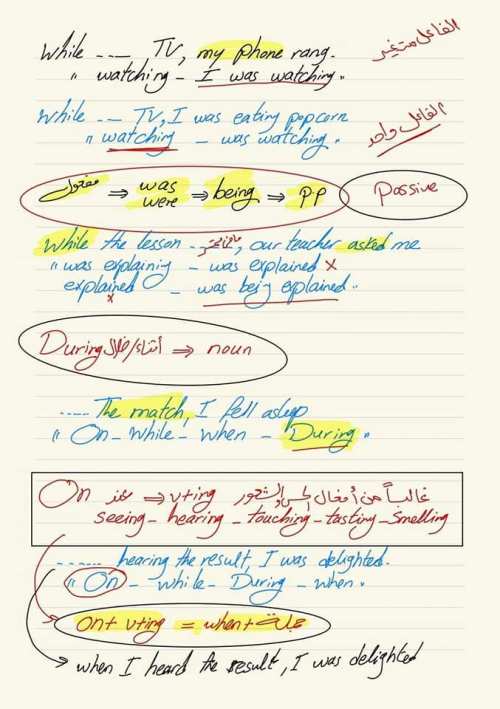 While ---- TV, my phone rang. الفاعل متغير
" watching - I was watching "
While --- TV, I was eating popcorn
" watching - was watching " الفاعل واحد
مفعول ⇒ was were ⇒ being ⇒ P.P Passive
While the lesson ---, our teacher asked me
" was explaining - was explained x
explained x - was being explained "
During أثناء/خلال ⇒ noun
----- The match, I fell asleep
" On - while - when - During "
On عند ⇒ v+ing غالباً من أفعال الحس والشعور
seeing - hearing - touching - tasting - smelling
------ hearing the result, I was delighted.
" On - while - During - when "
on + v+ing = when + جملة
when I heard the result, I was delighted